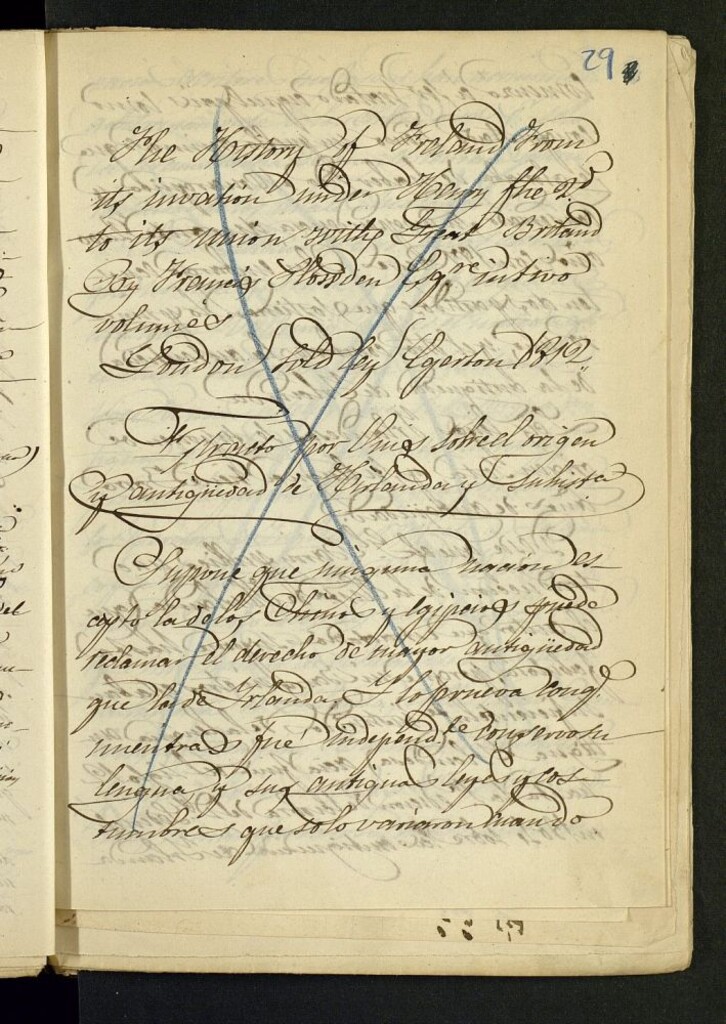 29
The History of Ireland From
its invation under Henry the 2.d
to its union with Great Britand
By Francis Plowden Esqre in two
volumes
London sold by Egerton 1812
Extracto por Chiss sobre el origen
y antigüedad de Hirlanda y su hista
Supone que ninguna nacion es-
cepto la de los Chinos y Egipcios puede
reclamar el derecho de mayor antigüedad
que la de Irlanda. Y lo prueva conq.e
mientras fué independ.te conservó su
lengua y sus antiguas leyes y cos-
tumbres que solo variaron cuando